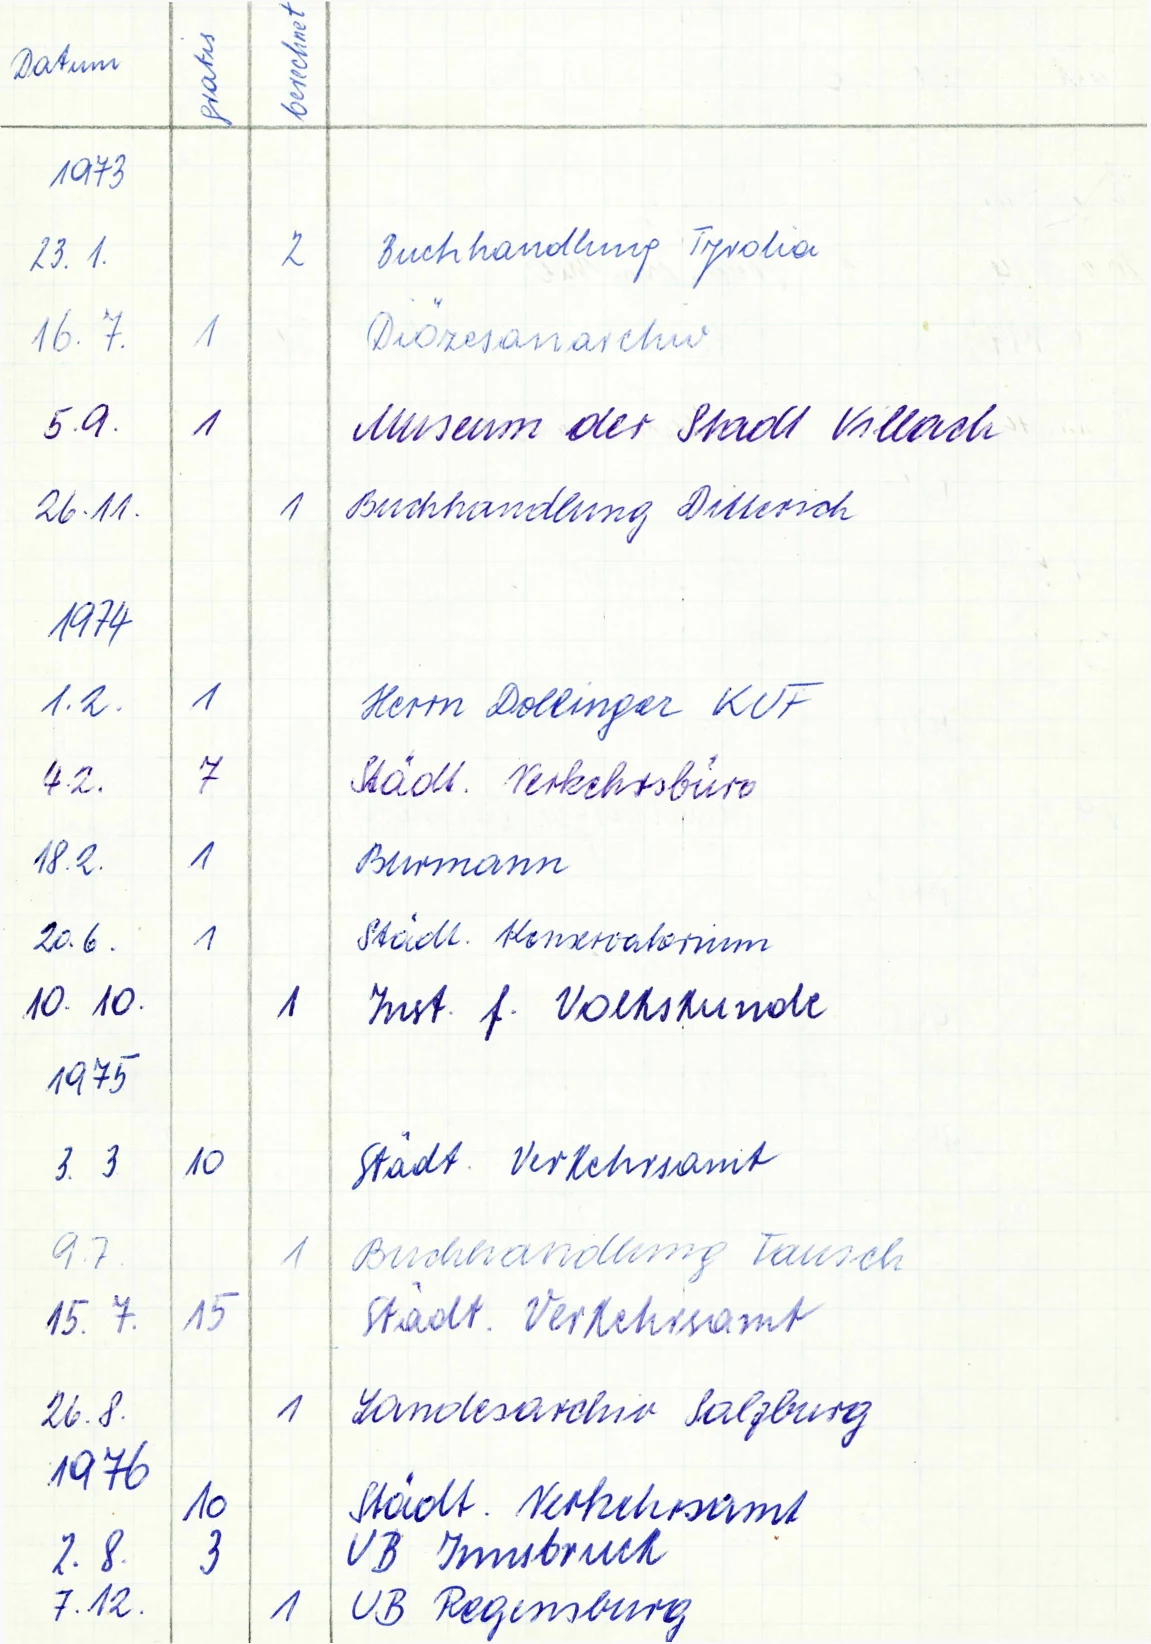 Datum gratis berechnet
1973
23. 1. 2 Buchhandlung Tyrolia
16. 7. 1 Diözesanarchiv
5.9. 1 Museum der Stadt Villach
26.11. 1 Buchhandlung Dittrich
1974
1.2. 1 Herrn Dollinger KUF
4.2. 7 Städt. Verkehrsbüro
18.2. 1 Burmann
20.6. 1 Städt. Konservatorium
10. 10. 1 Inst. f. Volkskunde
1975
3. 3 10 Städt. Verkehrsamt
9.7. 1 Buchhandlung Tausch
15. 7. 15 Städt. Verkehrsamt
26.8. 1 Landesarchiv Salzburg
1976
10 Städt. Verkehrsamt
2. 8. 3 UB Innsbruck
7.12. 1 UB Regensburg